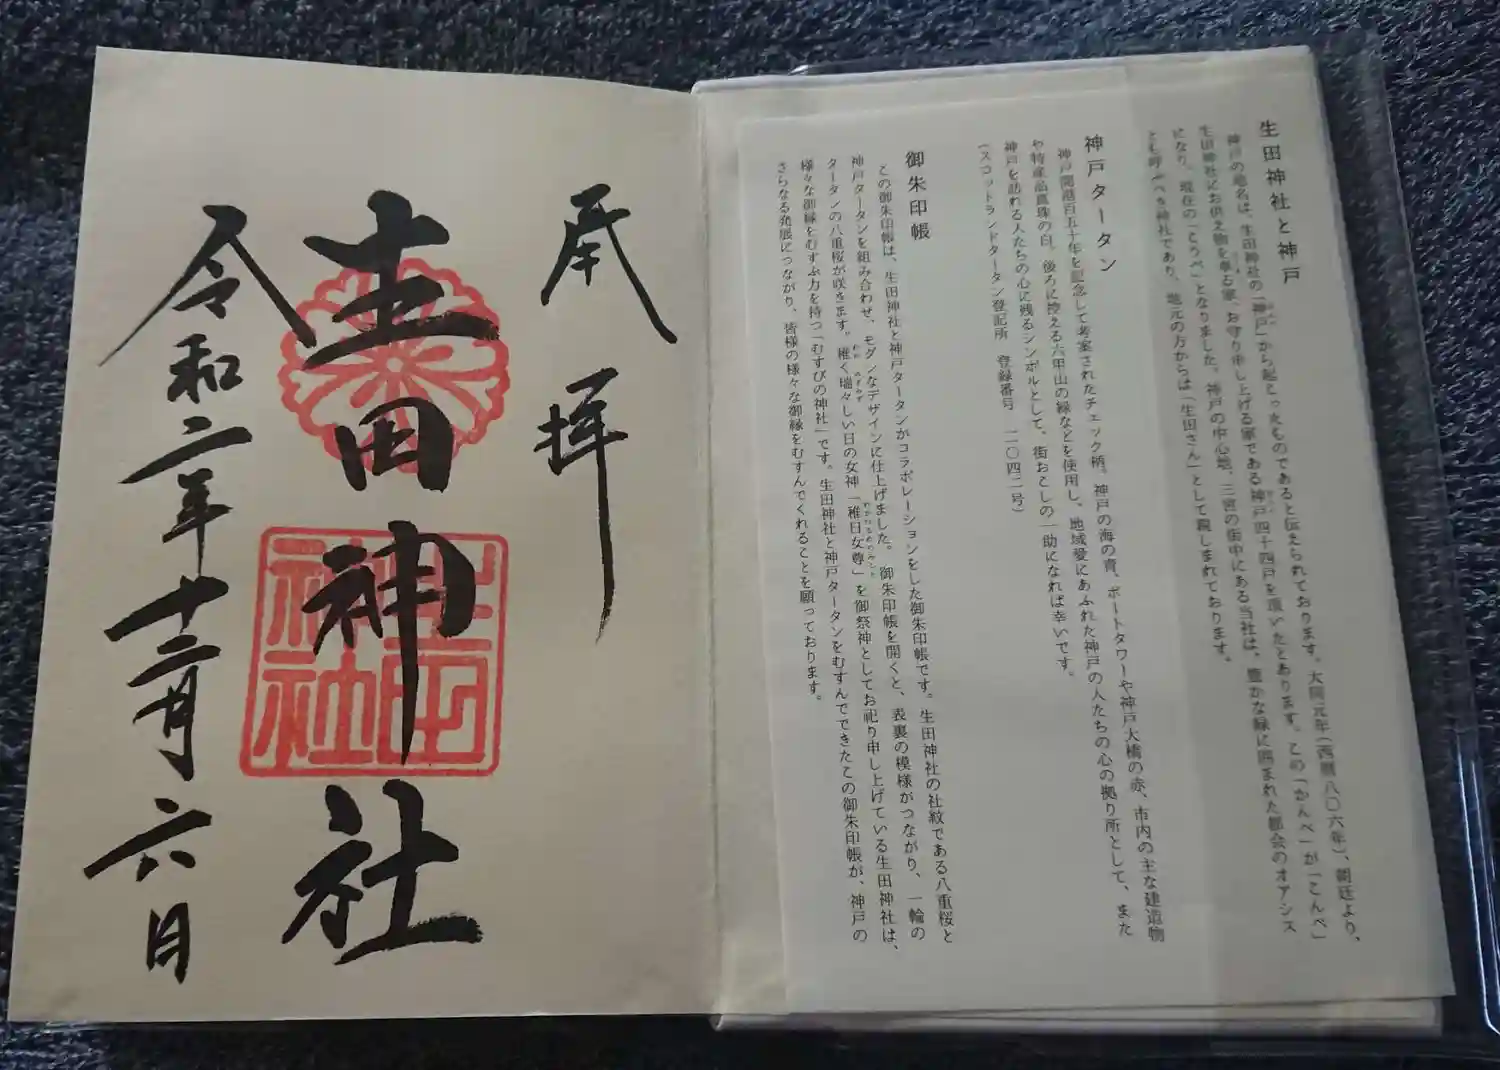 生田神社と神戸
神戸の地名は、生田神社の「神戸」から起こったものであると伝えられております。大同元年(西暦八〇六年)、朝廷より、
生田神社にお供え物を奉る家、お守り申し上げる家である神戸四十四戸を頂いたとあります。この「かんべ」が「こんべ」
になり、現在の「こうべ」となりました。神戸の中心地、三宮の街中にある当社は、豊かな緑に囲まれた都会のオアシス
とも呼ぶべき神社であり、地元の方からは「生田さん」として親しまれております。
神戸タータン
神戸開港百五十年を記念して考案されたチェック柄。神戸の海の青、ポートタワーや神戸大橋の赤、市内の主な建造物
や特産品真珠の白、後ろに控える六甲山の緑などを使用し、地域愛にあふれた神戸の人たちの心の拠り所として、また
神戸を訪れる人たちの心に残るシンボルとして、街おこしの一助になれば幸いです。
(スコットランドタータン登記所 登録番号 一二〇四二号)
御朱印帳
この御朱印帳は、生田神社と神戸タータンがコラボレーションをした御朱印帳です。生田神社の社紋である八重桜と
神戸タータンを組み合わせ、モダンなデザインに仕上げました。御朱印帳を開くと、表裏の模様がつながり、一輪の
タータンの八重桜が咲きます。稚く瑞々しい日の女神「稚日女尊」を御祭神としてお祀り申し上げている生田神社は、
様々な御縁をむすぶ力を持つ「むすびの神社」です。生田神社と神戸タータンをむすんでできたこの御朱印帳が、神戸の
さらなる発展につながり、皆様の様々な御縁をむすんでくれることを願っております。
奉拝
生田神社
生田神社
令和二年十二月六日